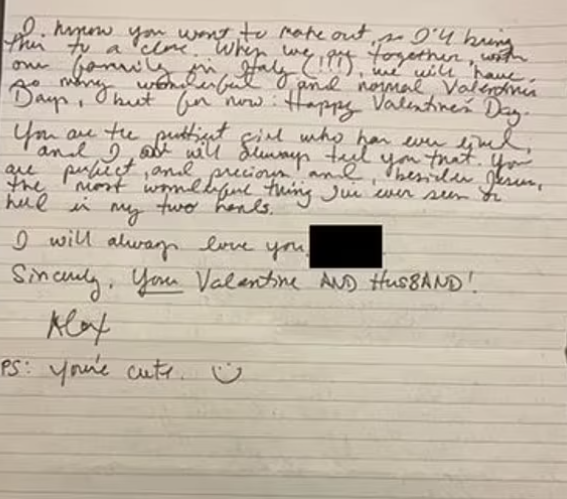 I know you want to make out, so I'll bring
this to a close. When we are together, with
our family in Italy (!!!), we will have
so many wonderful and normal Valentines
Days, but for now: Happy Valentine's Day.
You are the prettiest girl who has ever lived,
and I will always tell you that. You
are perfect, and precious and, besides Jesus,
the most wonderful thing I've ever seen or
held in my two hands.
I will always love you,
Sincerely, Your Valentine AND HUSBAND!
Alex
PS: you're cute. :)